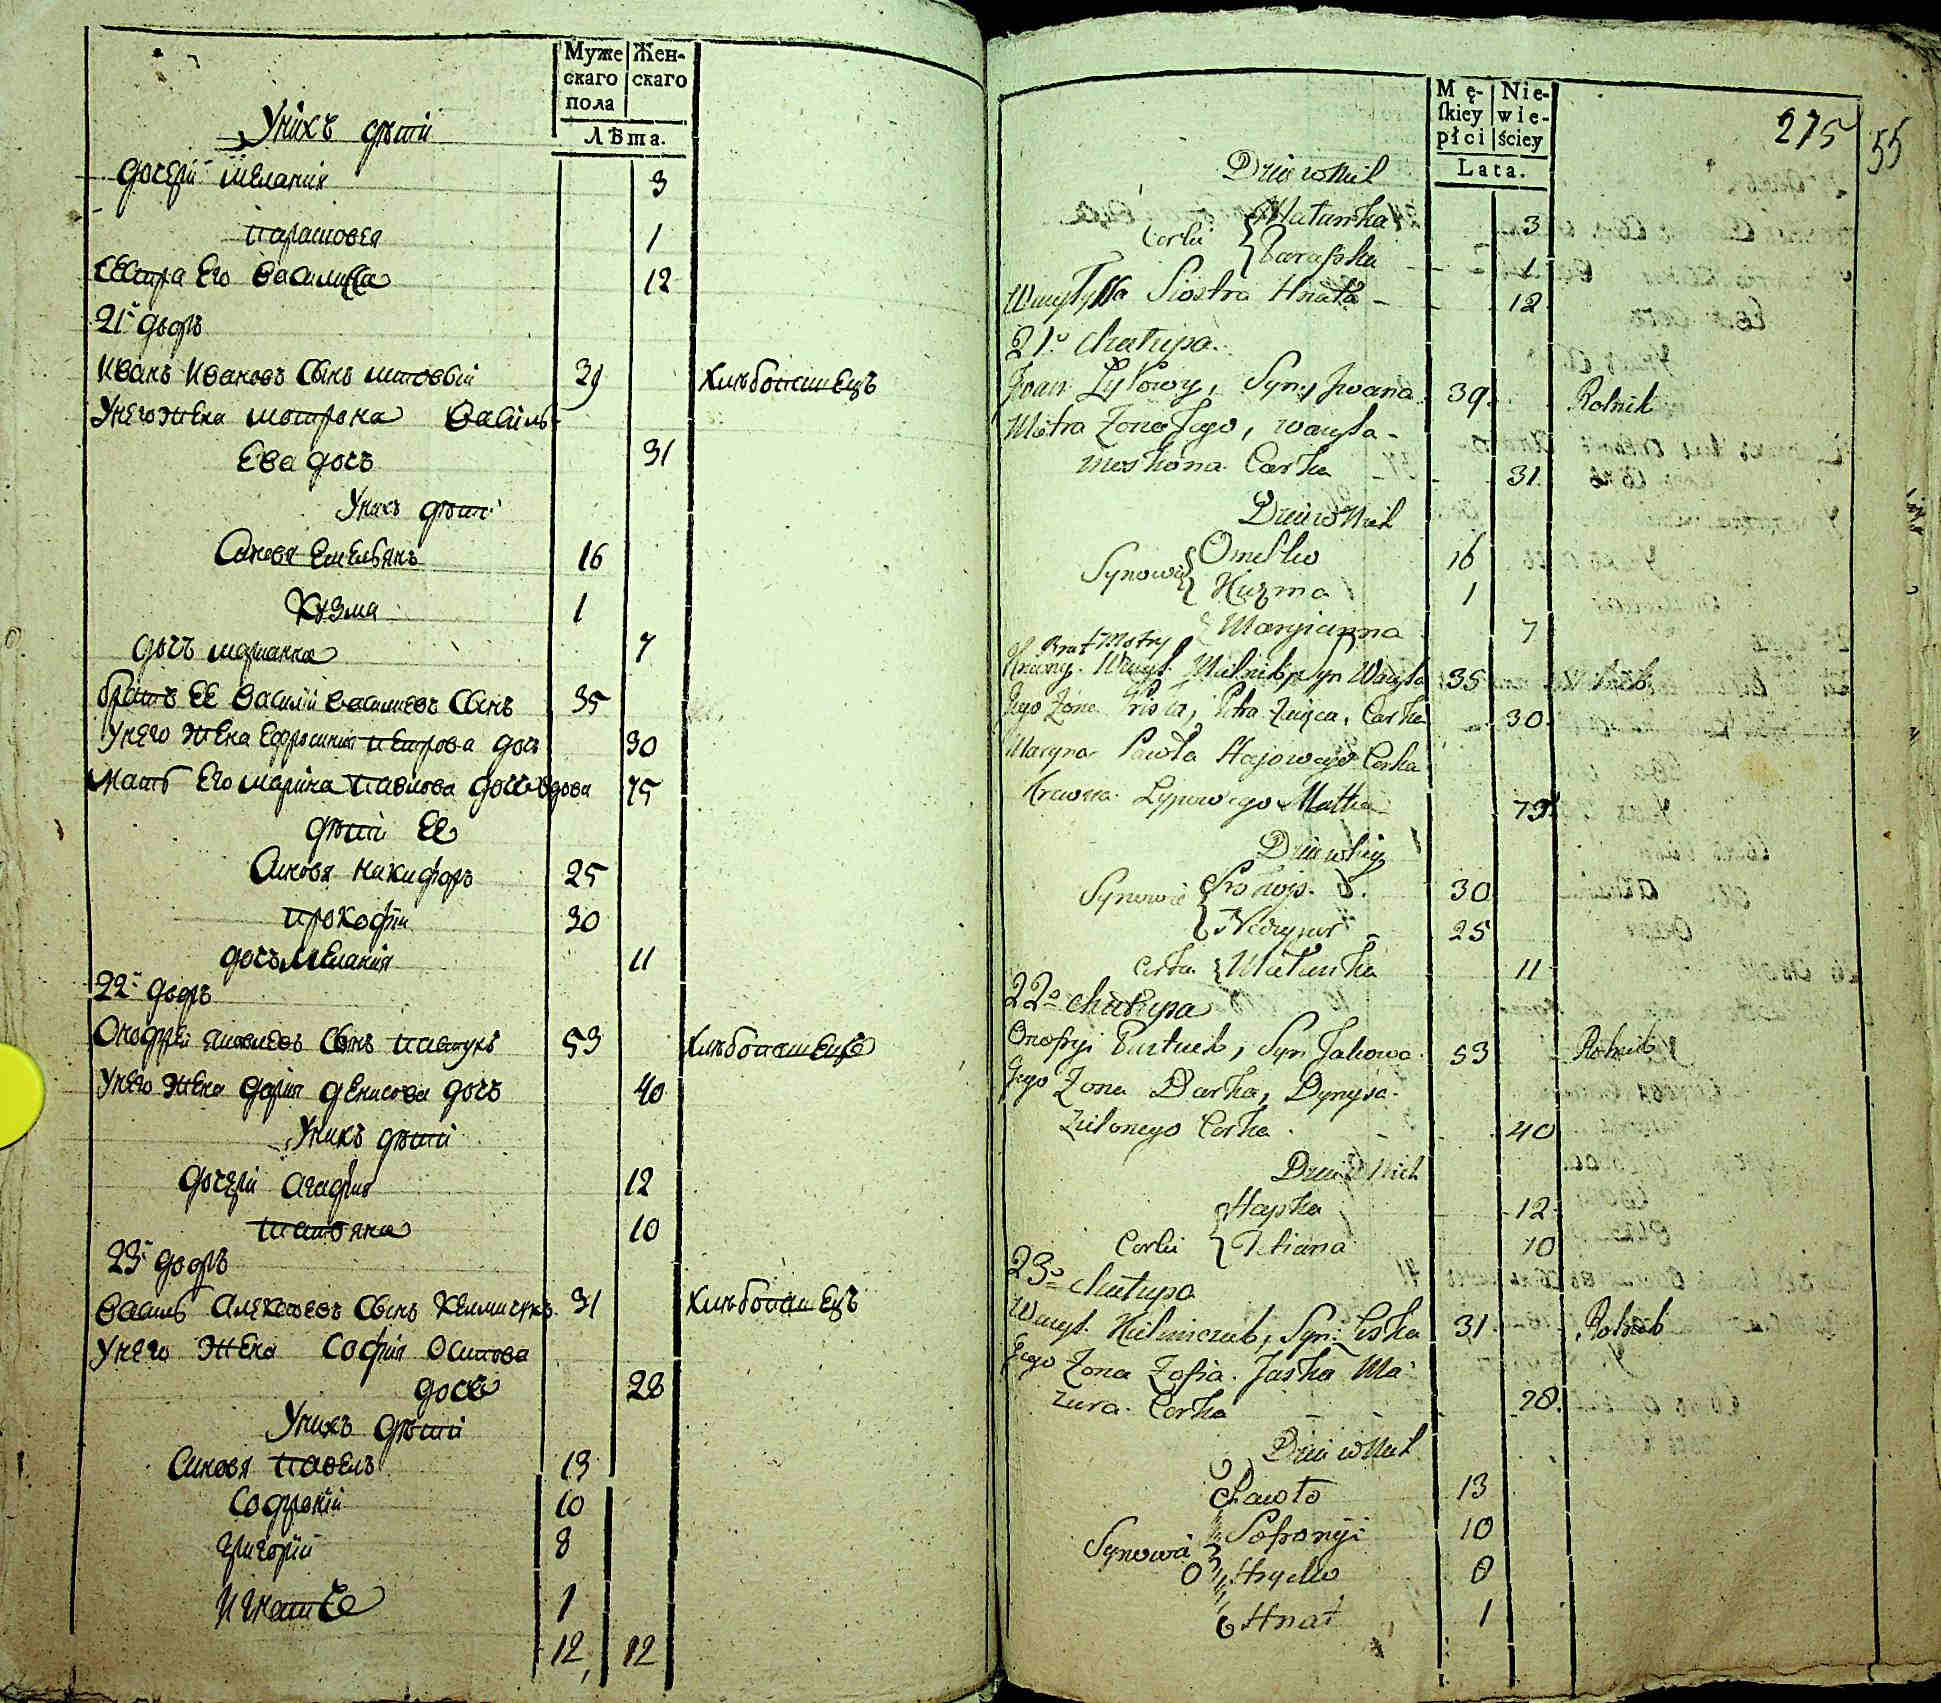 Муже Жен-
скаго скаго
пола
Лѣта.
Унихъ дѣти
дочери Мелания 3
Парасковея 1
Сестра Его Василиса 12
21й дворъ
Иванъ Ивановъ Сынъ Литовый 39 Хлѣбопашецъ
Унего Жена Мотрона Василь-
Ева дочь 31
Унихъ дѣти
Синовя Емельянъ 16
Кузма 1
дочь Марианна 7
братъ ЕЕ Василий Василиевъ Сынъ 35
Унего Жена Ефросиния Петрова дочь 30
Мать Его Марина Павлова дочь вдова 75
дѣти ЕЕ
Синовя Никифоръ 25
Прокофий 30
дочь Мелания 11
22й дворъ
Онофрей Яковлевъ Сынъ Пастухъ 53 Хлѣбопашецъ
Унего Жена Дария Денисова дочь 40
Унихъ дѣти
дочери Агафия 12
Татояна 10
23й дворъ
Василь Алексѣевъ Сынъ Келмичукъ 31 Хлѣбопашецъ
Унего Жена София Осипова
дочь 28
Унихъ дѣти
Синовя Павелъ 13
Софроний 10
Григорий 8
Игнатъ 1
12 12
Mę- Nie-
skiey wie-
płci ściey
Lata.
275 55
Dzieci w Nich
Corki Małanka 3
Paraska 1
Wasylyssa Siostra Hnata 12
21o Chałupa.
Iwan Lytowy, Syn Iwana 39. Rolnik
Motra Zona Jego, Wasyla-
Corka 31
Dzieci w Nich
Synowie Omelko 16
Kuzma 1
Maryianna 7
Brat Motry
Wasyl Syn Wasyla 35 Rolnik
Jego Zona Corka 30
Maryna Pawła Hajowego Corka
Matka 75
Dzieci w Niey
Synowie Prokop. 30
Nikypor 25
Corka Małanka 11
22o Chałupa
Onofryi Pastuch, Syn Jakowa 53 Rolnik
Jego Zona Darka, Dynysa
Zielonego Corka. 40
Dzieci w Nich
Hapka 12
Corki Tetiana 10
23o Chałupa
Wasyl Kielmiczuk, Syn Leska 31. Rolnik
Jego Zona Zofia. Jaska Ma-
zura. Corka 28.
Dzieci w Nich
Pawło 13
Synowie Sofronyi 10
Hrycko 8
Hnat 1